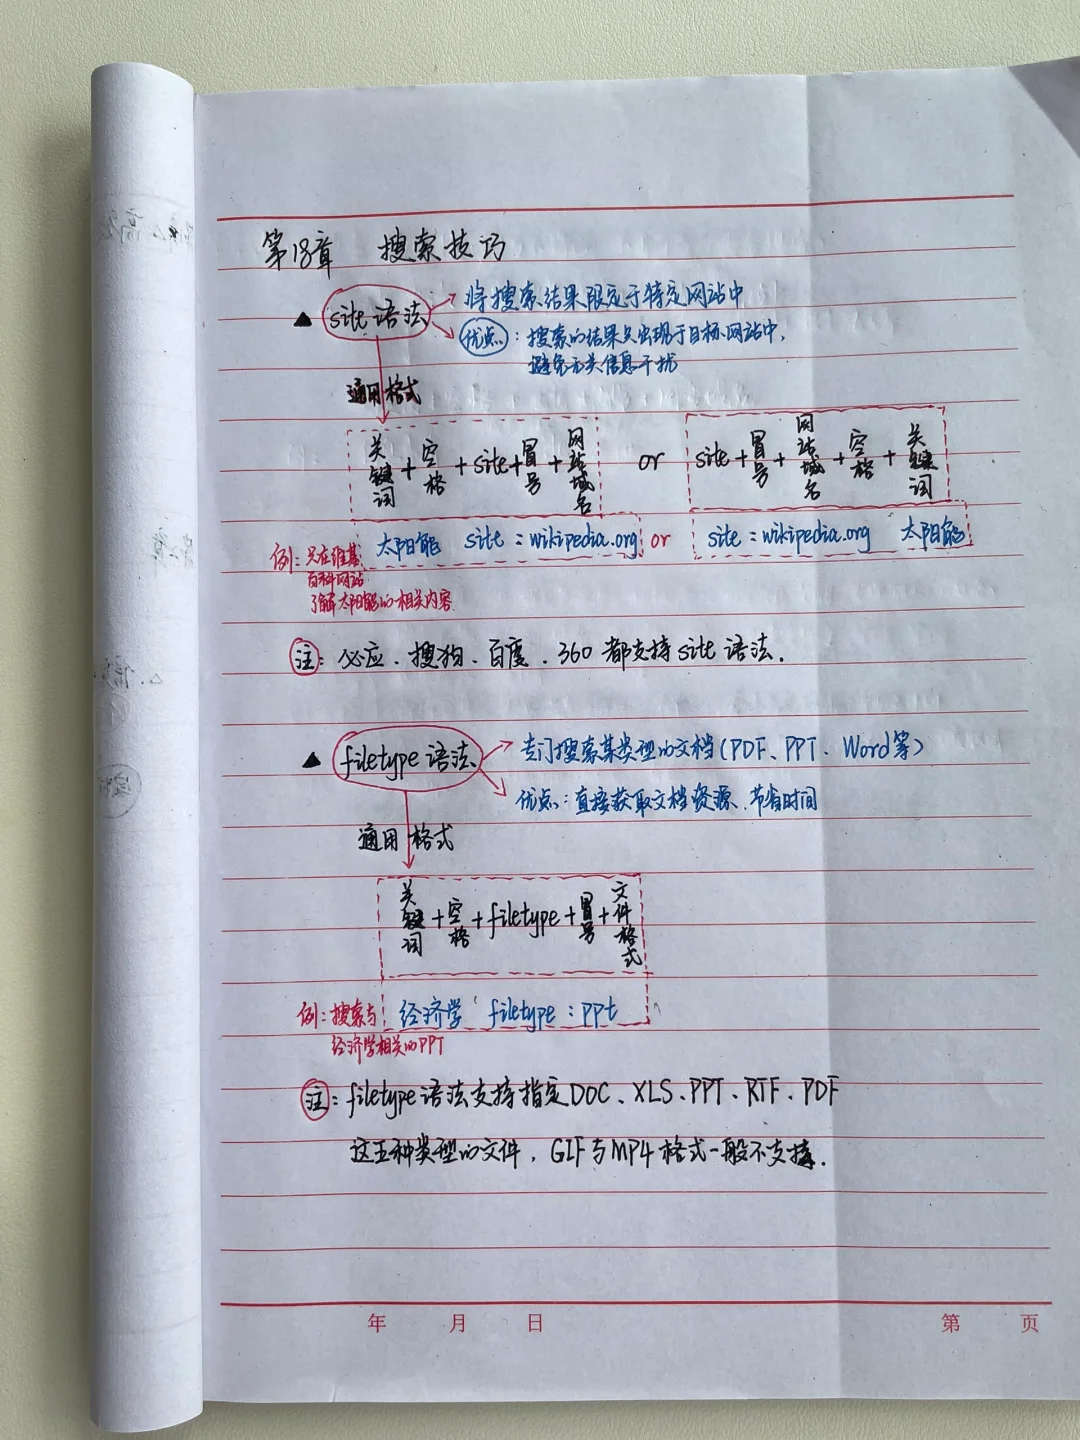 第18章 搜索技巧
▲ site 语法 将搜索结果限定于特定网站中
优点：搜索的结果只出现于目标网站中，
避免无关信息干扰
通用格式
关键词 + 空格 + site + 冒号 + 网站域名 or site + 冒号 + 网站域名 + 空格 + 关键词
例：只在维基 太阳能 site：wikipedia.org or site：wikipedia.org 太阳能
百科网站
了解太阳能的相关内容
注：必应、搜狗、百度、360都支持site语法.
▲ filetype 语法 专门搜索某类型的文档(PDF、PPT、Word等)
优点：直接获取文档资源、节省时间
通用格式
关键词 + 空格 + filetype + 冒号 + 文件格式
例：搜索与 经济学 filetype：ppt
经济学相关的PPT
注：filetype语法支持指定DOC、XLS、PPT、RTF、PDF
这五种类型的文件，GIF与MP4格式一般不支持.
年 月 日 第 页